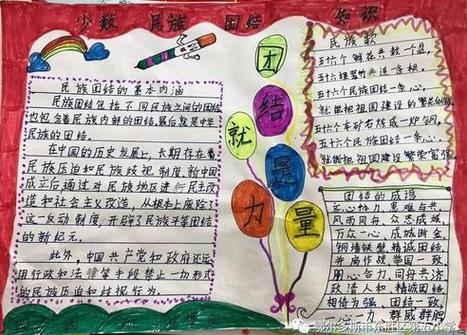 少数 民族 团结 知识
民族团结的基本内涵
民族团结包括不同民族之间的团结
也包含着民族内部的团结。最后就是中华
民族的团结。
在中国的历史发展上，长期存在着
民族压迫和民族歧视制度。新中国
成立后通过对民族地区进行民主改
造和社会主义改造，从根本上废除了
这一反动制度，开辟了民族平等团结
的新纪元。
此外，中国共产党和政府还运
用行政和法律等手段禁止一切形式
的民族压迫和歧视行为。
团
结
就
是
力
量
民族歌
五十六个鲜花共载一个盆，
五十六个民族团结一条心，
五十六个民族团结一条心，
就能把祖国建设
团结的成语
同心协力 患难与共
风雨同舟 众志成城
万众一心 成城断金
铜墙铁壁 精诚团结
并肩作战 举国一致
用心合力 同舟共济
精诚团结
相倚为强 团结一致
一心一力 群威群胆